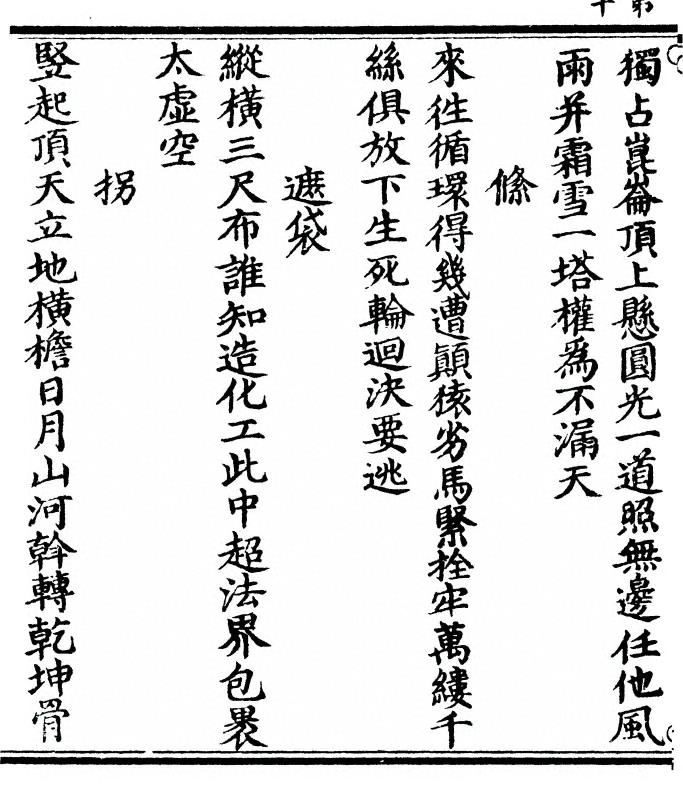 獨占崑崙頂上懸圓光一道照無邊任他風
雨并霜雪一塔權為不漏天
絛
來徃循環得幾遭顛猿劣馬緊拴牢萬縷千
絲俱放下生死輪迴決要逃
遮袋
縱橫三尺布誰知造化工此中超法界包褁
太虛空
拐
竪起頂天立地橫檐日月山河斡轉乾坤骨